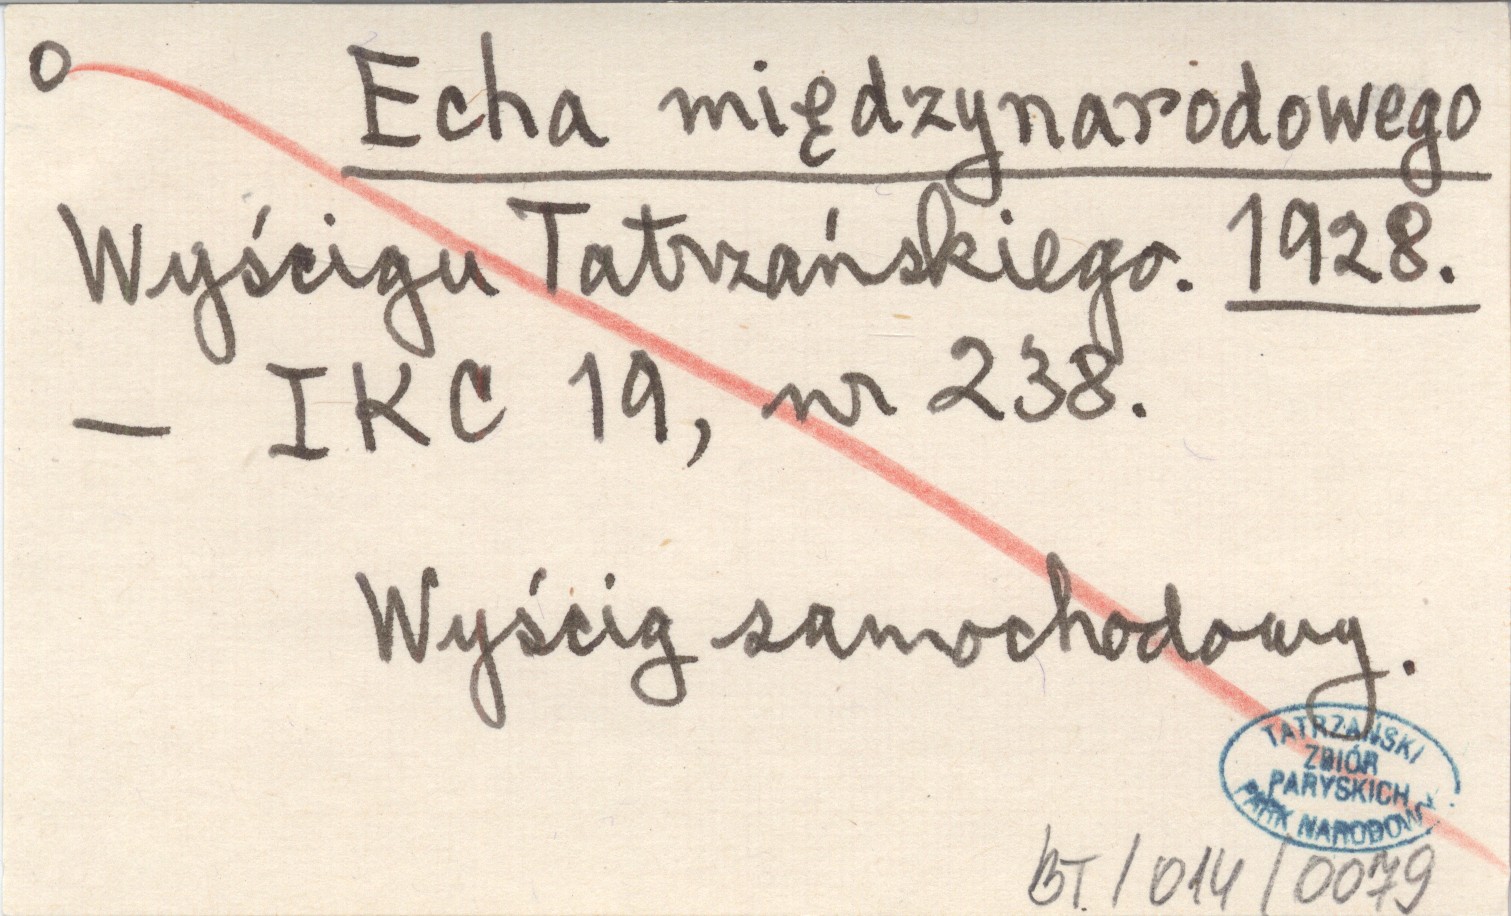 O Echa międzynarodowego
Wyścigu Tatrzańskiego. 1928.
— IKC 19, nr 238.
Wyścig samochodowy.
TATRZAŃSKI
ZBIÓR
PARYSKICH
PARK NARODOWY
BT. / 014 / 0079